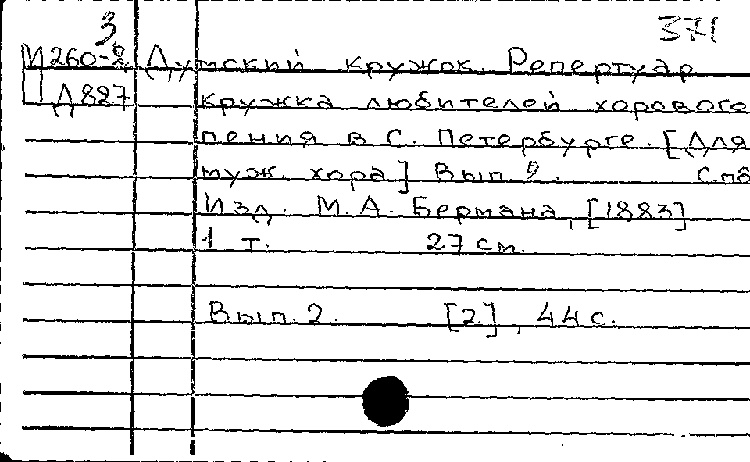 3 371
М260-2 Думский кружок. Репертуар
Д887 кружка любителей хорового
пения в С. Петербурге. [Для
муж. хора] Вып. 2. Спб
Изд. М.А. Бермана, [1883]
1 т. 27 см.
Вып. 2. [2], 44 с.